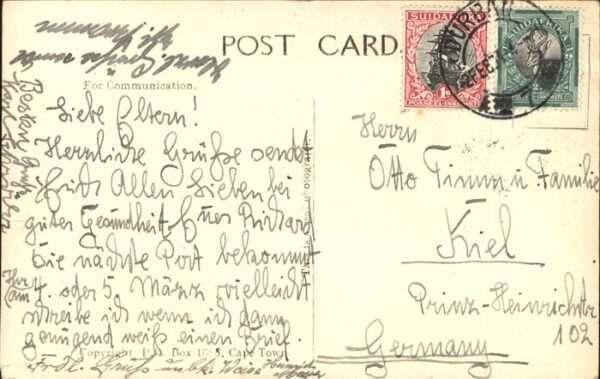 POST CARD.
For Communication.
Liebe Eltern!
Herzliche Grüße sendet
Euch Allen Lieben bei
guter Gesundheit Euer Richard
Die nächste Post bekommt
Ihr am 4. oder 5. März vielleicht
schreibe ich wenn ich dann
genügend weiß einen Brief.
Frdl. Gruß
Beste Grüße
Herzl. Grüße sendet
Copyright P. O. Box Cape Town
SUIDAFRIKA
DURBAN
FEB
Herrn
Otto Timm u Familie
Kiel
Prinz-Heinrichstr
102
Germany